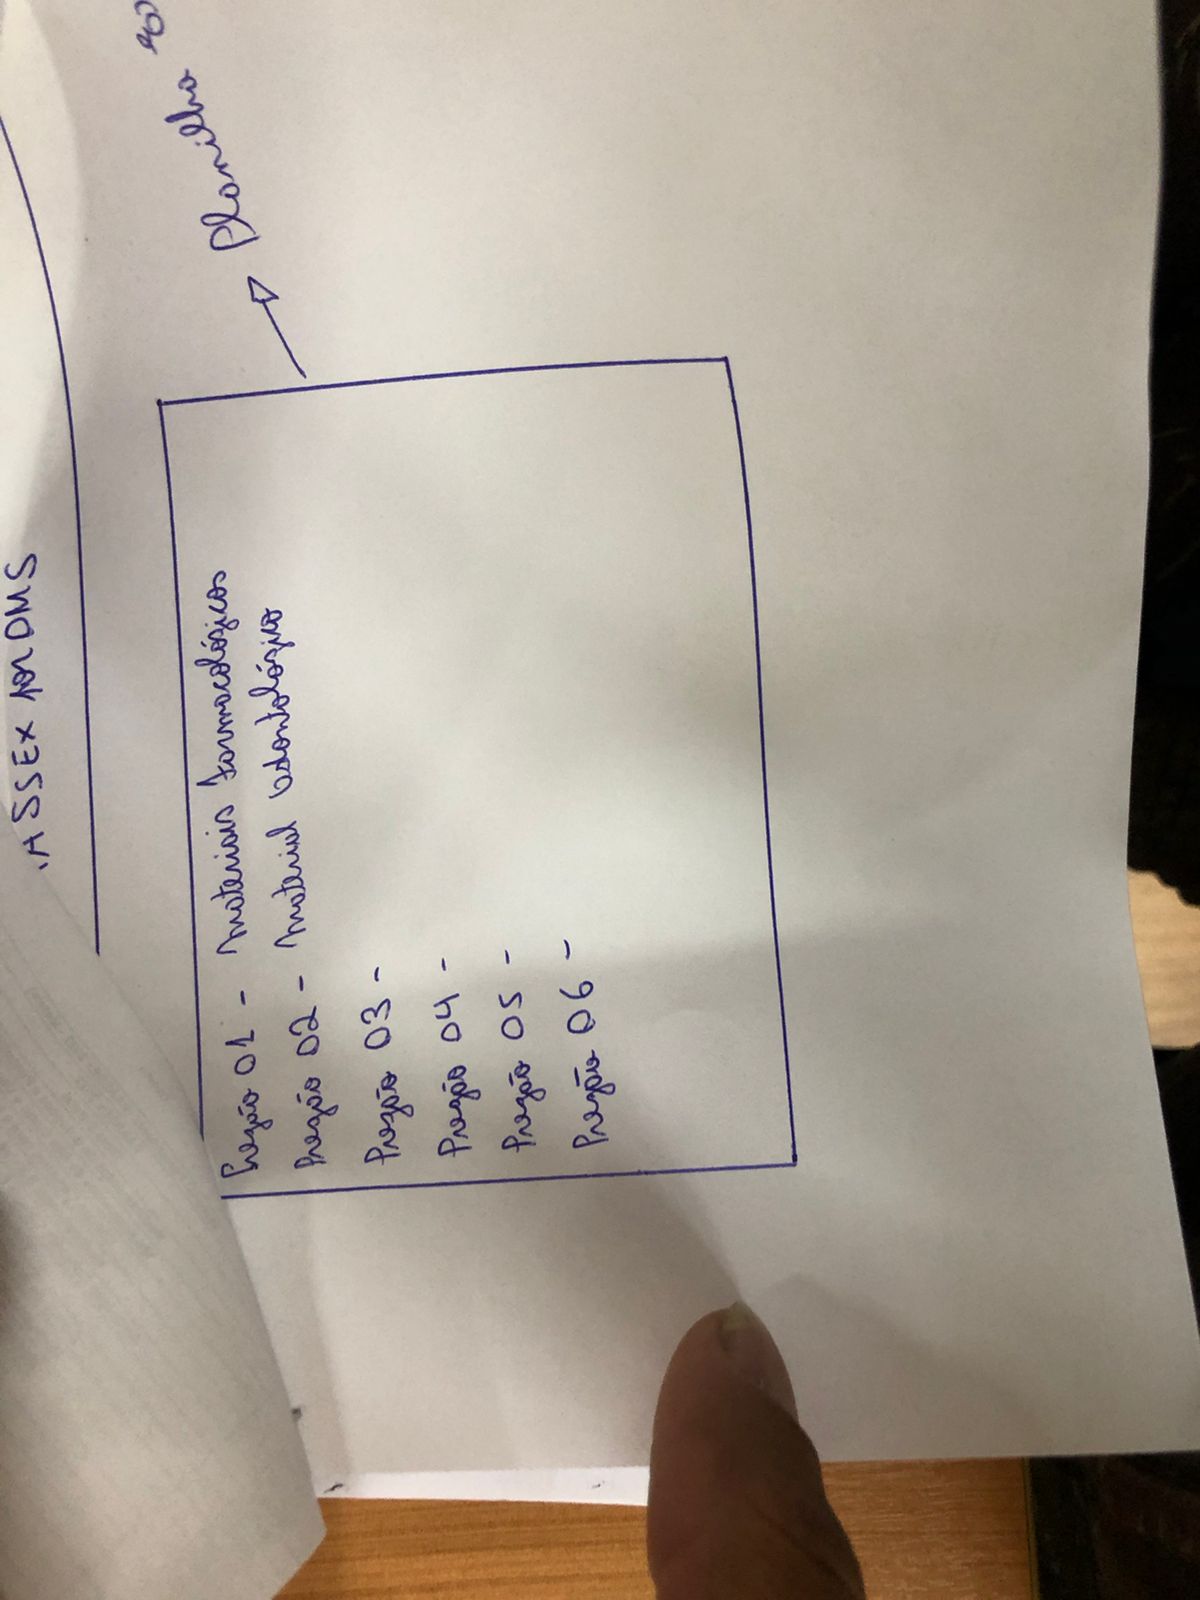 ASSEX por DMS
Pregão 01 - Materiais Farmacológicos
Pregão 02 - Material Odontológico
Pregão 03 -
Pregão 04 -
Pregão 05 -
Pregão 06 -
Planilha